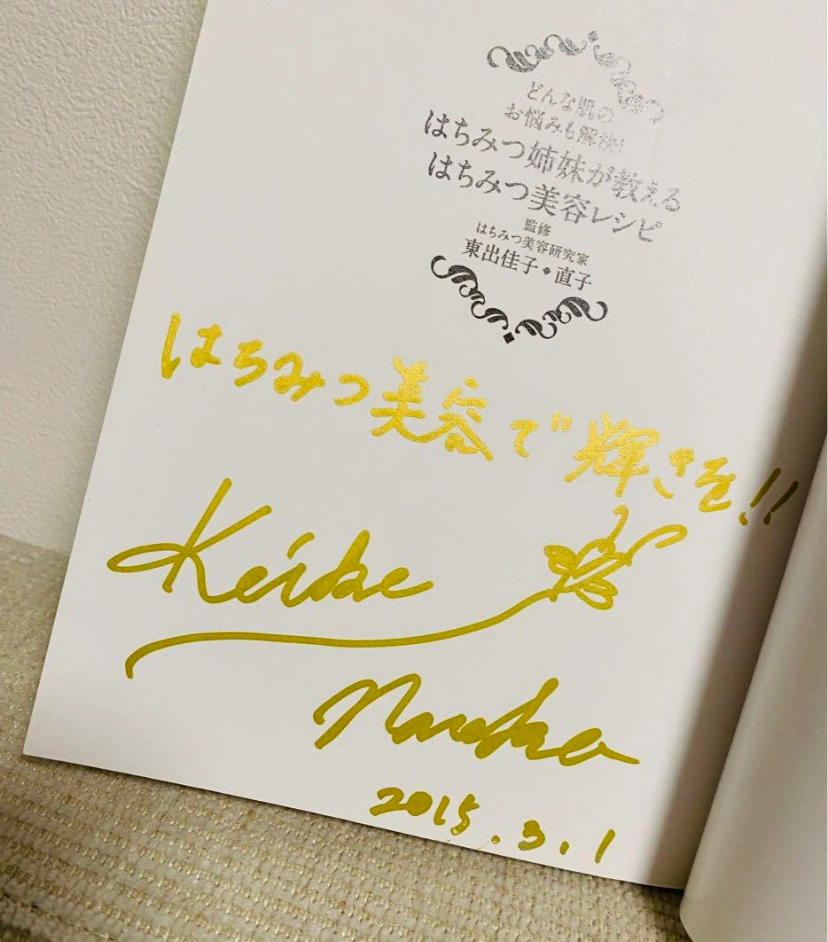 どんな肌の
お悩みも解決!
はちみつ姉妹が教える
はちみつ美容レシピ
監修
はちみつ美容研究家
東出佳子◆直子
はちみつ美容で輝きを!!
Keiko
Naoko
2015.3.1